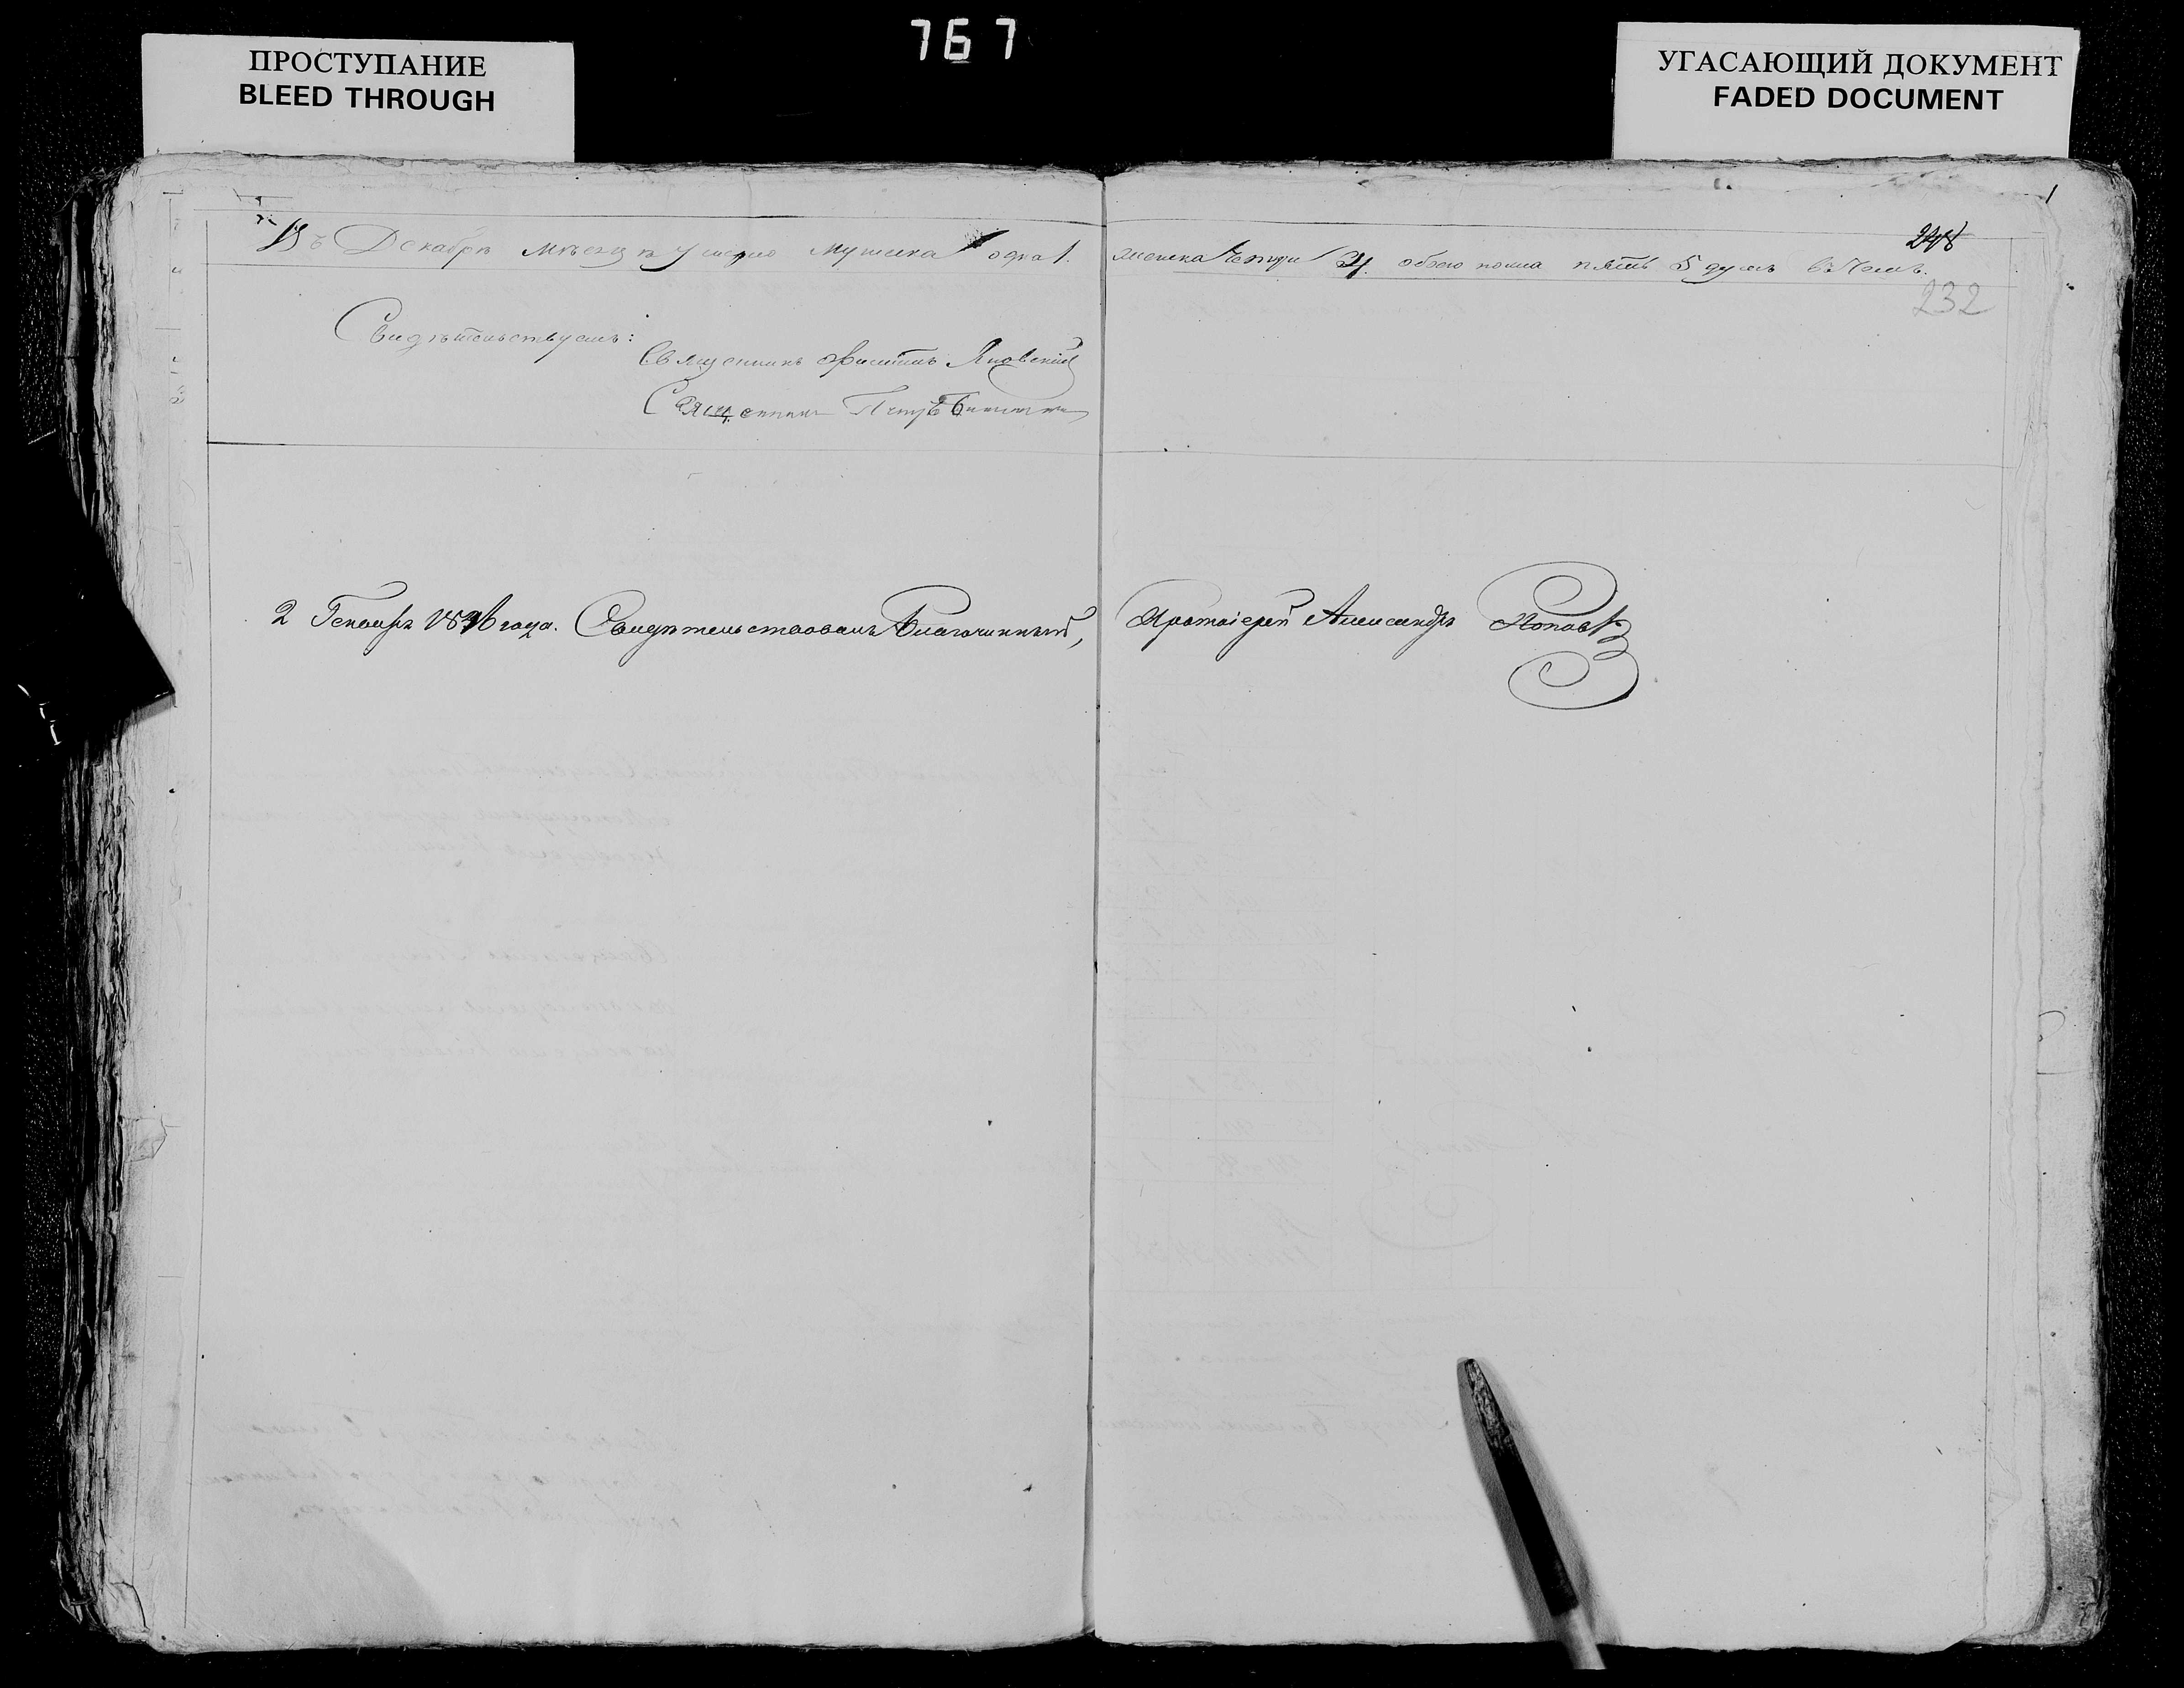 767
ПРОСТУПАНИЕ
BLEED THROUGH
УГАСАЮЩИЙ ДОКУМЕНТ
FADED DOCUMENT
248
Въ Декабрѣ мѣсяцѣ умерло мужеска одна 1. женска четыри 4. обоего пола пять 5 душъ
232
Свидѣтельствуемъ:
Священникъ Яновскій
Священникъ Петръ
2 Генваря года. Свидѣтельствовалъ Благочинный, Протоіерей Александръ Поповъ